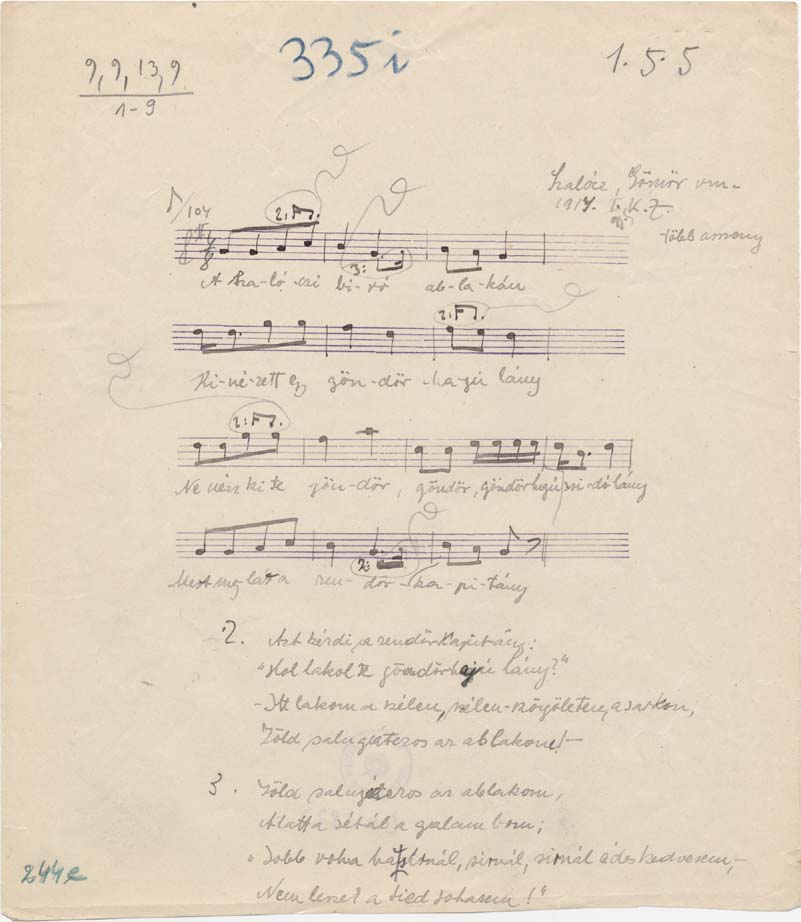 9, 9, 13, 9
1-9
335i
1. 5. 5
/104
Szalócz, Gömör vm.
1914. K. Z.
több asszony
2.
3:
A Sza-ló-czi bi-ró ab-la-kán
2.
Ki-né-zett egy gön-dör ha-jú lány
2:
Ne nézz ki te gön-dör, göndör, göndörhajú zsi-dó lány
2:
Mert meg-lát a ren-dör-ka-pi-tány
2. Azt kérdi a rendörkapitány:
"Hol lakol te göndörhajú lány?"
-Itt lakom a szélen, szélen a sarkon,
Zöld salugáteros az ablakom!-
3. Zöld salugáteros az ablakom,
Alatta sétál a galambom;
"Jobb volna ha sírnál, sirnál édes kedvesem,-
Nem leszek a tied sohasem!"
244e